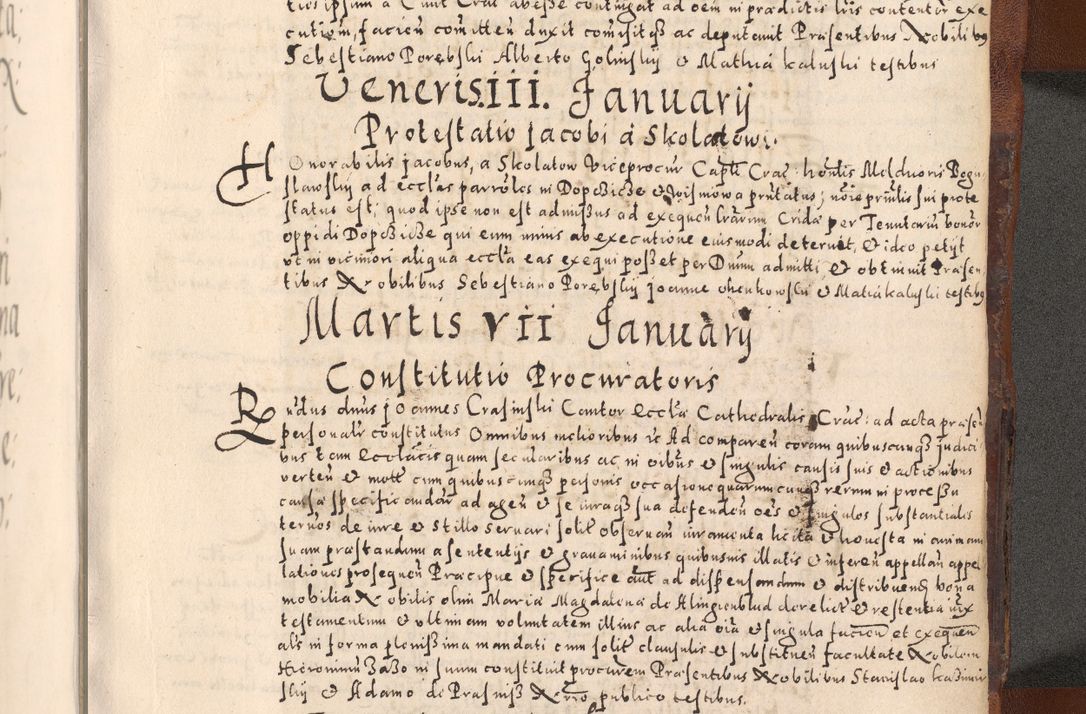 tios ipsum a Civit Crac abesse contingat ad oem in prædictis lris contentor exe
cutiom, facien comitten duxit comisitqs ac deputauit Præsentibus Nobilibus
Sebestiano Porębski Alberto Golinskij & Mathia kaluski testibus
Veneris. III. Januarij
Protestatio Jacobi a Skolatowi.
Honorabilis jacobus, a Skolatow Viceprocur Capti Crac honlis Melchioris Bogu
slawskij ad ecclas parroles in Dopcżicże & Wismowa prntatus, noie prinlis sui prote
status est, quod ipse non est admissus ad exequen lrarum Crida per Tenutarium bonor
oppidi Dopcżicże qui eum minis ab executione eiusmodi deteruit, & ideo petijt
vt in viciniori aliqua eccla eas exequi posset per Dnum admitti, & obtinuit Præsen
tibus Nobilibus Sebestiano Porębskij joanne chenkowskij & Matia kaluski testibus
Martis VII Januarij
Constitutio Procuratoris
Rndus dnus joannes Crasinski Cantor Eccla Cathedralis Crac: ad acta præsen
personalr constitutus Omnibus melioribus ic Ad comparen coram quibuscunqs judici
bus tam Ecclacis quam secularibus ac in oibus & singulis causis suis & actionibus
verten & mott cum quibuscunqs personis occasione quarumcunqs rerum in processu
causæ specificandar ad agen & se iuraqs sua defenden oes & singulos substantiales
ternos de iure & Stillo seruari solit obseruan iuramenta licita & honesta in animam
suam præstandum a sententijs & grauaminibus quibusuis illatis & inferen appellan appe
lationes prosequen Præcipue & specifice aut ad dispensandum & distribuend bona
mobilia Nobilis olim Maria Magdalena de Alingienblud derelict & restentia iux
testamentum & vltimam voluntatem illius ac alia oia & singula facien et exequen
als in forma plenissima mandati cum solit clausulis & substituen facultate Nobilem
Hieronimu in suum constituit procurem Præsentibus Nobilibus Stanislao kazimir
skij & Adamo de Prasniss Nrio publico testibus.